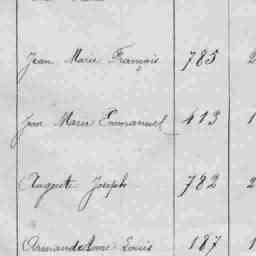 Jean Marie François 785 2
Jean Marie Emmanuel 413 1
Auguste Joseph 782 2
Armand Aimé Louis 187 1